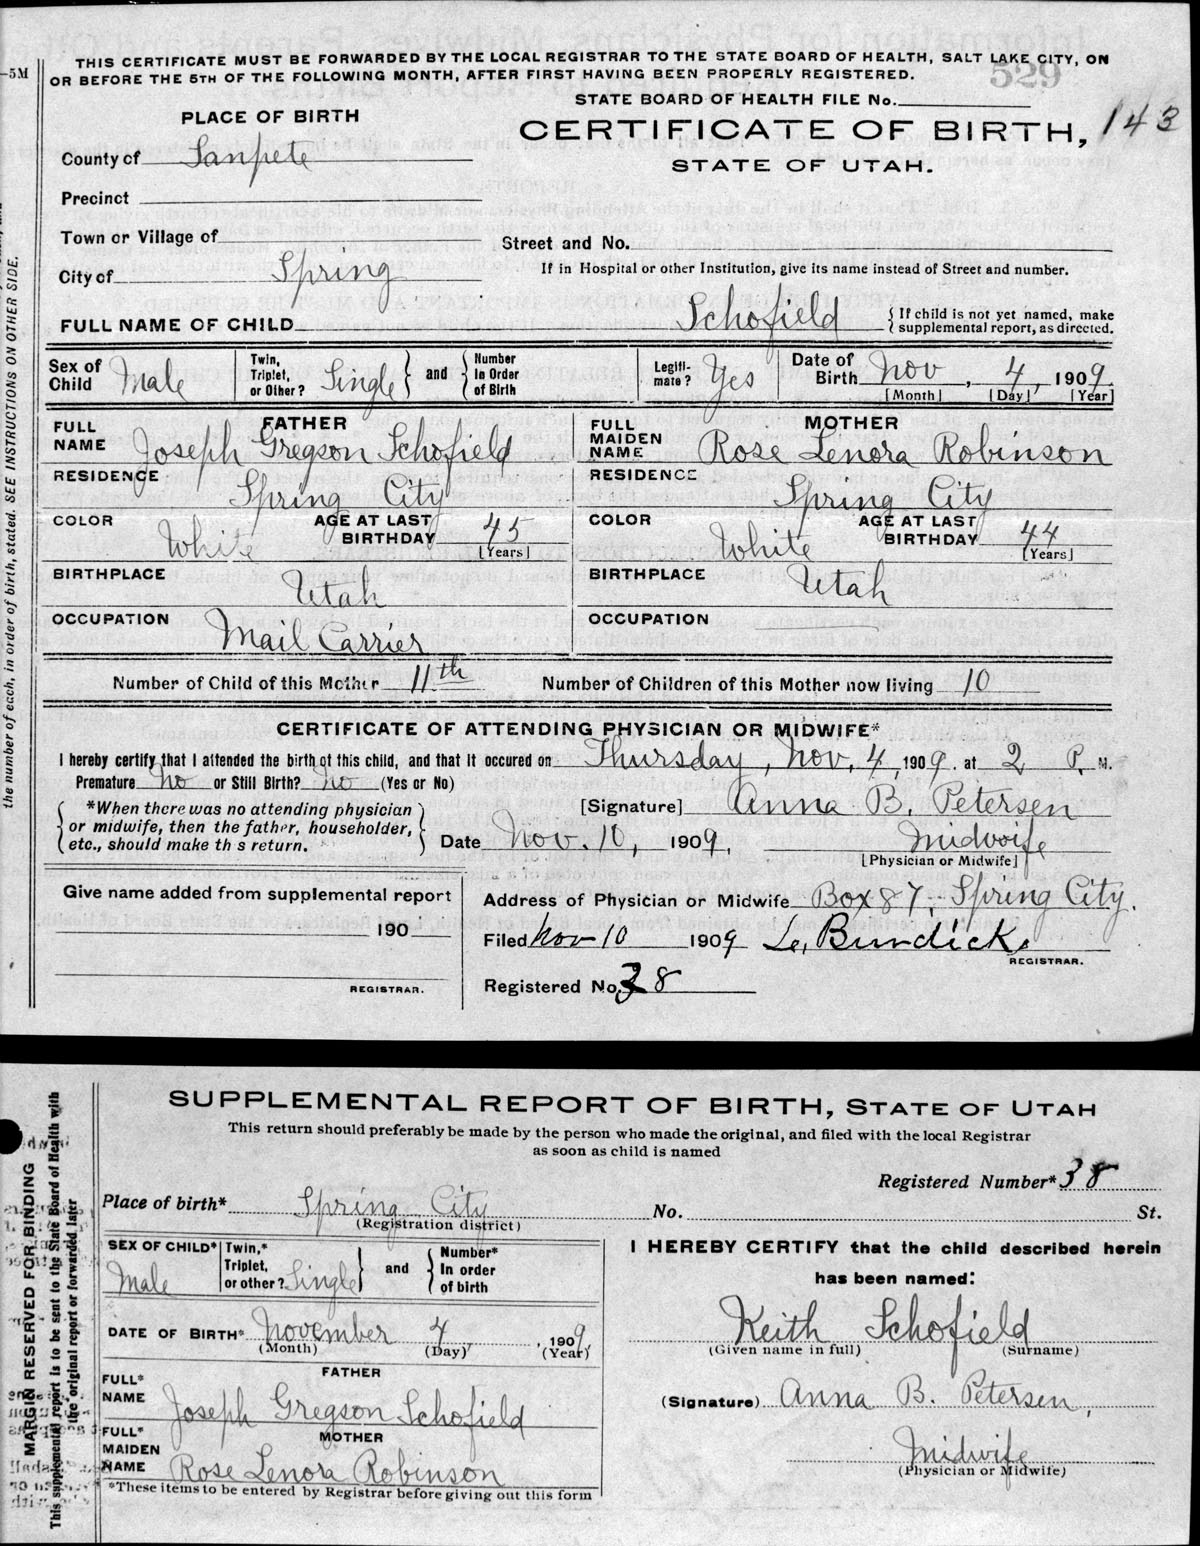 THIS CERTIFICATE MUST BE FORWARDED BY THE LOCAL REGISTRAR TO THE STATE BOARD OF HEALTH, SALT LAKE CITY, ON
OR BEFORE THE 5TH OF THE FOLLOWING MONTH, AFTER FIRST HAVING BEEN PROPERLY REGISTERED.
529
—5M
STATE BOARD OF HEALTH FILE No.
PLACE OF BIRTH
CERTIFICATE OF BIRTH, 143
STATE OF UTAH.
County of Sanpete
Precinct
Town or Village of
Street and No.
City of Spring
If in Hospital or other Institution, give its name instead of Street and number.
FULL NAME OF CHILD Schofield {If child is not yet named, make
supplemental report, as directed.
Sex of Child Male
Twin, Triplet, or Other? Single } and { Number In Order of Birth
Legiti-mate? Yes
Date of Birth Nov, 4, 1909.
[Month] [Day] [Year]
FATHER
FULL NAME Joseph Gregson Schofield
RESIDENCE Spring City
COLOR White AGE AT LAST BIRTHDAY 45 [Years]
BIRTHPLACE Utah
OCCUPATION Mail Carrier
MOTHER
FULL MAIDEN NAME Rose Lenora Robinson
RESIDENCE Spring City
COLOR White AGE AT LAST BIRTHDAY 44 [Years]
BIRTHPLACE Utah
OCCUPATION
Number of Child of this Mother 11th Number of Children of this Mother now living 10
CERTIFICATE OF ATTENDING PHYSICIAN OR MIDWIFE*
I hereby certify that I attended the birth of this child, and that it occured on Thursday, Nov. 4, 1909. at 2 P. M.
Premature No or Still Birth? No (Yes or No)
*When there was no attending physician
or midwife, then the father, householder,
etc., should make th s return.
[Signature] Anna B. Petersen
Date Nov. 10, 1909. Midwife
[Physician or Midwife]
Give name added from supplemental report
190
REGISTRAR.
Address of Physician or Midwife Box 87, Spring City.
Filed Nov 10 1909 Burdick
REGISTRAR.
Registered No. 38
the number of each, in order of birth, stated. SEE INSTRUCTIONS ON OTHER SIDE.
SUPPLEMENTAL REPORT OF BIRTH, STATE OF UTAH
This return should preferably be made by the person who made the original, and filed with the local Registrar
as soon as child is named
Registered Number* 38
Place of birth* Spring City No. St.
(Registration district)
SEX OF CHILD* Male
Twin,* Triplet, or other? Single } and { Number* In order of birth
DATE OF BIRTH* November 4, 1909,
(Month) (Day) (Year)
FATHER
FULL* NAME Joseph Gregson Schofield
MOTHER
FULL* MAIDEN NAME Rose Lenora Robinson
*These items to be entered by Registrar before giving out this form
I HEREBY CERTIFY that the child described herein
has been named:
Keith Schofield
(Given name in full) (Surname)
(Signature) Anna B. Petersen,
Midwife
(Physician or Midwife)
MARGIN RESERVED FOR BINDING
This supplemental report is to be sent to the State Board of Health with
the original report or forwarded later